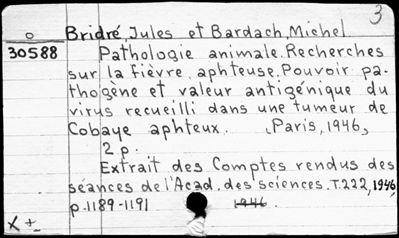 3
o Bridré, Jules et Bardach, Michel
30588 Pathologie animale. Recherches
sur la fièvre aphteuse. Pouvoir pa-
thogène et valeur antigénique du
virus recueilli dans une tumeur de
Cobaye aphteux. Paris, 1946,
2 p.
Extrait des Comptes rendus des
séances de l'Acad. des sciences. T.222, 1946,
p. 1189-1191 1946.